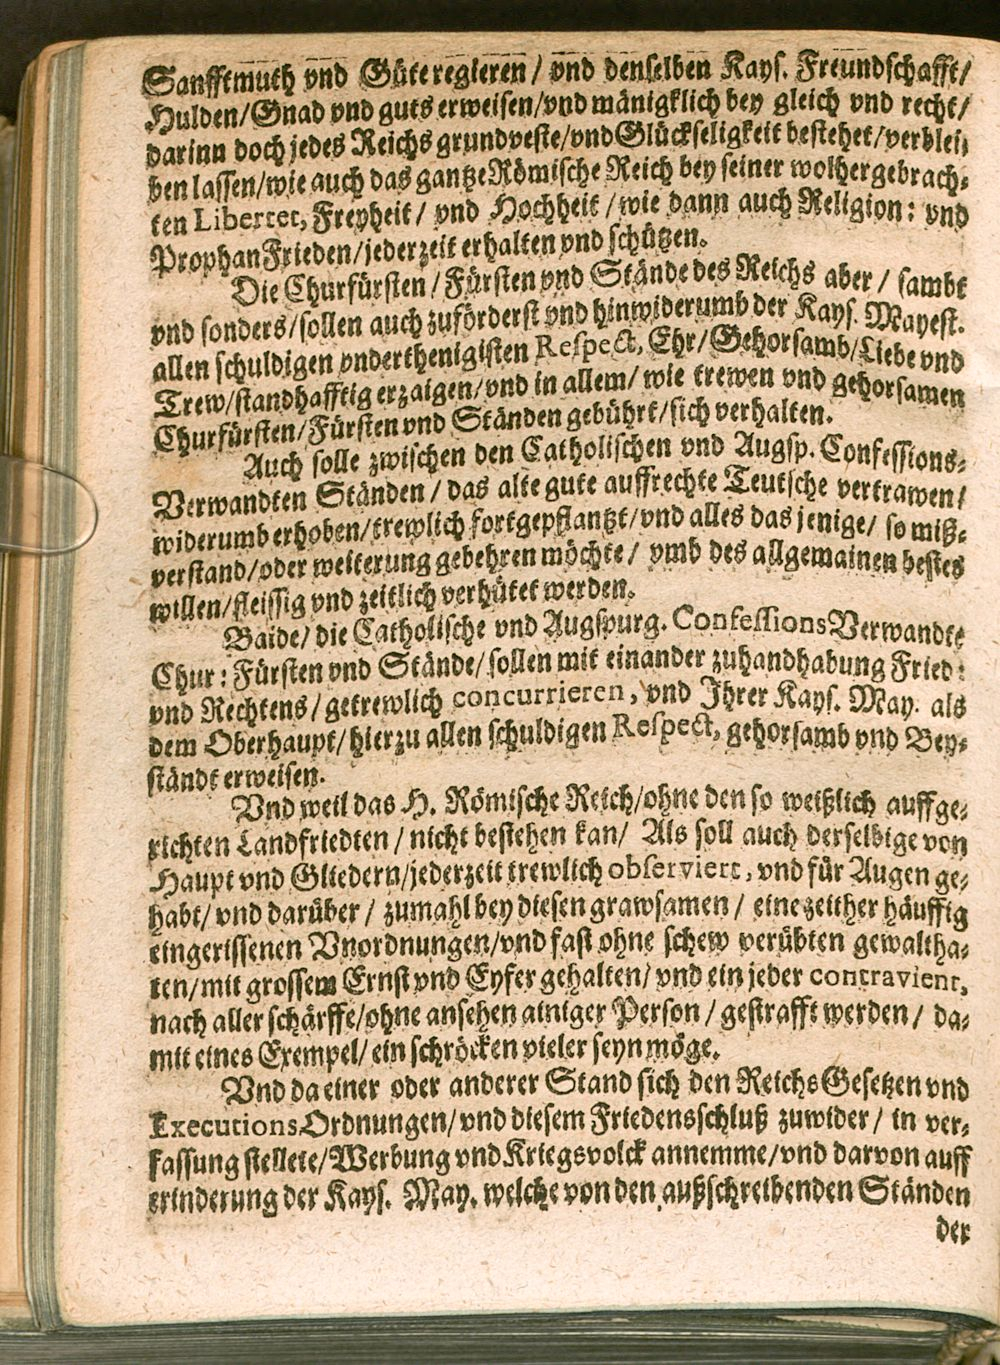 Sanfftmuth vnd Güte regieren / vnd denselben Kays. Freundschafft/
Hulden/Gnad vnd guts erweisen/vnd mänigklich bey gleich vnd recht/
darinn doch jedes Reichs grundveste/vnd Glückseligkeit bestehet/verblei⸗
ben lassen/wie auch das gantze Römische Reich bey seiner wolhergebrach⸗
ten Libertet, Freyheit / vnd Hochheit / wie dann auch Religion: vnd
Prophan Frieden/jederzeit erhalten vnd schützen.
Die Churfürsten / Fürsten vnd Stände des Reichs aber / sambt
vnd sonders/sollen auch zuförderst vnd hinwiderumb der Kays. Mayest.
allen schuldigen vnderthenigisten Respect, Ehr/Gehorsamb/Liebe vnd
Trew/standhafftig erzaigen/vnd in allem/ wie trewen vnd gehorsamen
Churfürsten/Fürsten vnd Ständen gebührt/sich verhalten.
Auch solle zwischen den Catholischen vnd Augsp. Confessions⸗
Verwandten Ständen / das alte gute auffrechte Teutsche vertrawen/
widerumb erhoben/trewlich fortgepflantzt/vnd alles das jenige/ so miß⸗
verstand/oder weiterung gebehren möchte / vmb des allgemainen bestes
willen/fleissig vnd zeitlich verhütet werden.
Baide/ die Catholische vnd Augspurg. Confessions Verwandte
Chur: Fürsten vnd Stände/ sollen mit einander zuhandhabung Fried:
vnd Rechtens / getrewlich concurrieren, vnd Ihrer Kays. May. als
dem Oberhaupt/hierzu allen schuldigen Respect, gehorsamb vnd Bey⸗
ständt erweisen.
Vnd weil das H. Römische Reich/ohne den so weißlich auffge⸗
richten Landfriedten / nicht bestehen kan/ Als soll auch derselbige von
Haupt vnd Gliedern/jederzeit trewlich observiert, vnd für Augen ge⸗
habt/ vnd darüber / zumahl bey diesen grawsamen / eine zeither häuffig
eingerissenen Vnordnungen/vnd fast ohne schew verübten gewaltha⸗
ten/mit grossem Ernst vnd Eyfer gehalten/ vnd ein jeder contravient,
nach aller schärffe/ohne ansehen ainiger Person / gestrafft werden / da⸗
mit eines Exempel/ ein schröcken vieler seyn möge.
Vnd da einer oder anderer Stand sich den Reichs Gesetzen vnd
Executions Ordnungen/ vnd diesem Friedensschluß zuwider / in ver⸗
fassung stellete/Werbung vnd Kriegsvolck annemme/vnd darvon auff
erinderung der Kays. May. welche von den außschreibenden Ständen
der